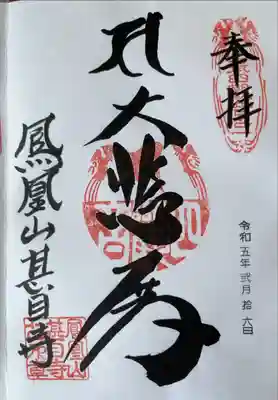 奉拝
令和五年弐月拾六日
大悲殿
鳳凰山甚目寺